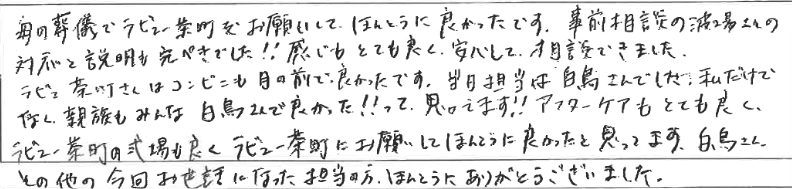 母の葬儀でラビュー葉町をお願いして、ほんとうに良かったです。事前相談の波場さんの
対応と説明も完ぺきでした!!感じもとても良く、安心して、相談できました。
ラビュー葉町さんはコンビニも目の前で、良かったです。当日担当は白鳥さんでした。私だけで
なく、親族もみんな白鳥さんで良かった!!って、思ってます!!アフターケアもとても良く、
ラビュー葉町の式場も良くラビュー葉町にお願いしてほんとうに良かったと思ってます。白鳥さん、
その他の今回お世話になった担当の方、ほんとうにありがとうございました。